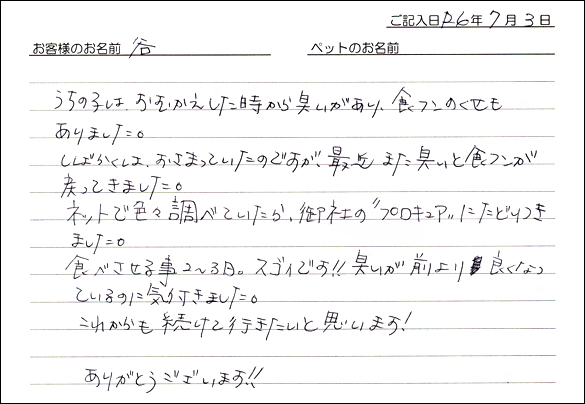 ご記入日 R6年7月3日
お客様のお名前 谷 ペットのお名前
うちの子は、おむかえした時から臭いがあり、食フンのくせも
ありました。
しばらくは、おさまっていたのですが、最近また臭いと食フンが
戻ってきました。
ネットで色々調べていたら、御社の"プロキュア"にたどりつき
ました。
食べさせる事2〜3日。スゴイです!!臭いが前より良くなっ
ているのに気付きました。
これからも続けて行きたいと思います!
ありがとうございます!!